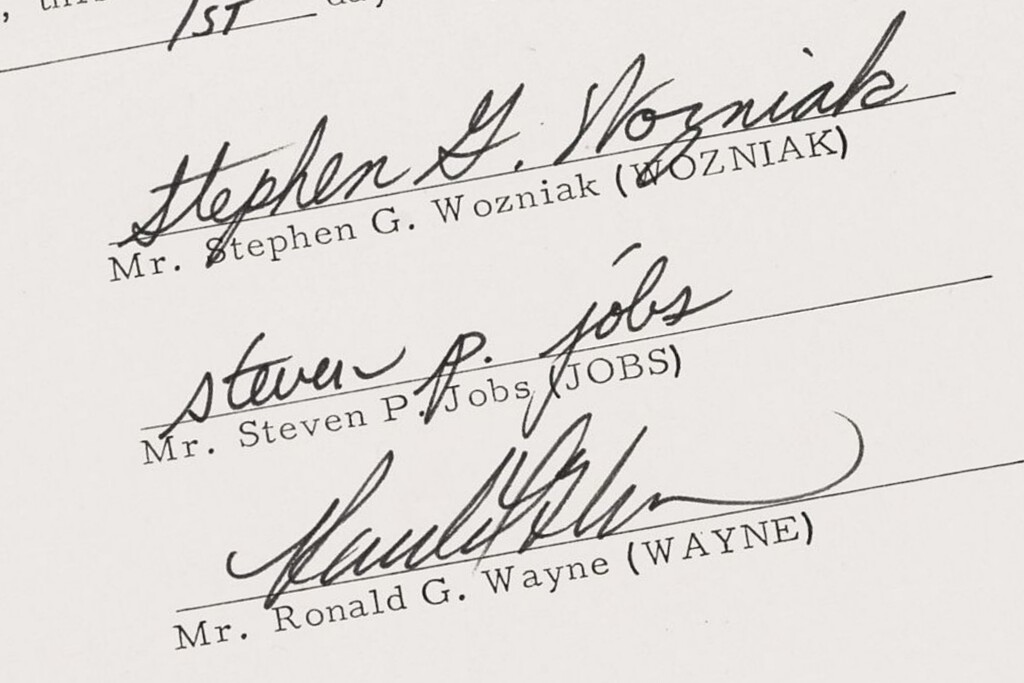 1ST
Stephen G. Wozniak
Mr. Stephen G. Wozniak (WOZNIAK)
steven p. jobs
Mr. Steven P. Jobs (JOBS)
Ronald G Wayne
Mr. Ronald G. Wayne (WAYNE)